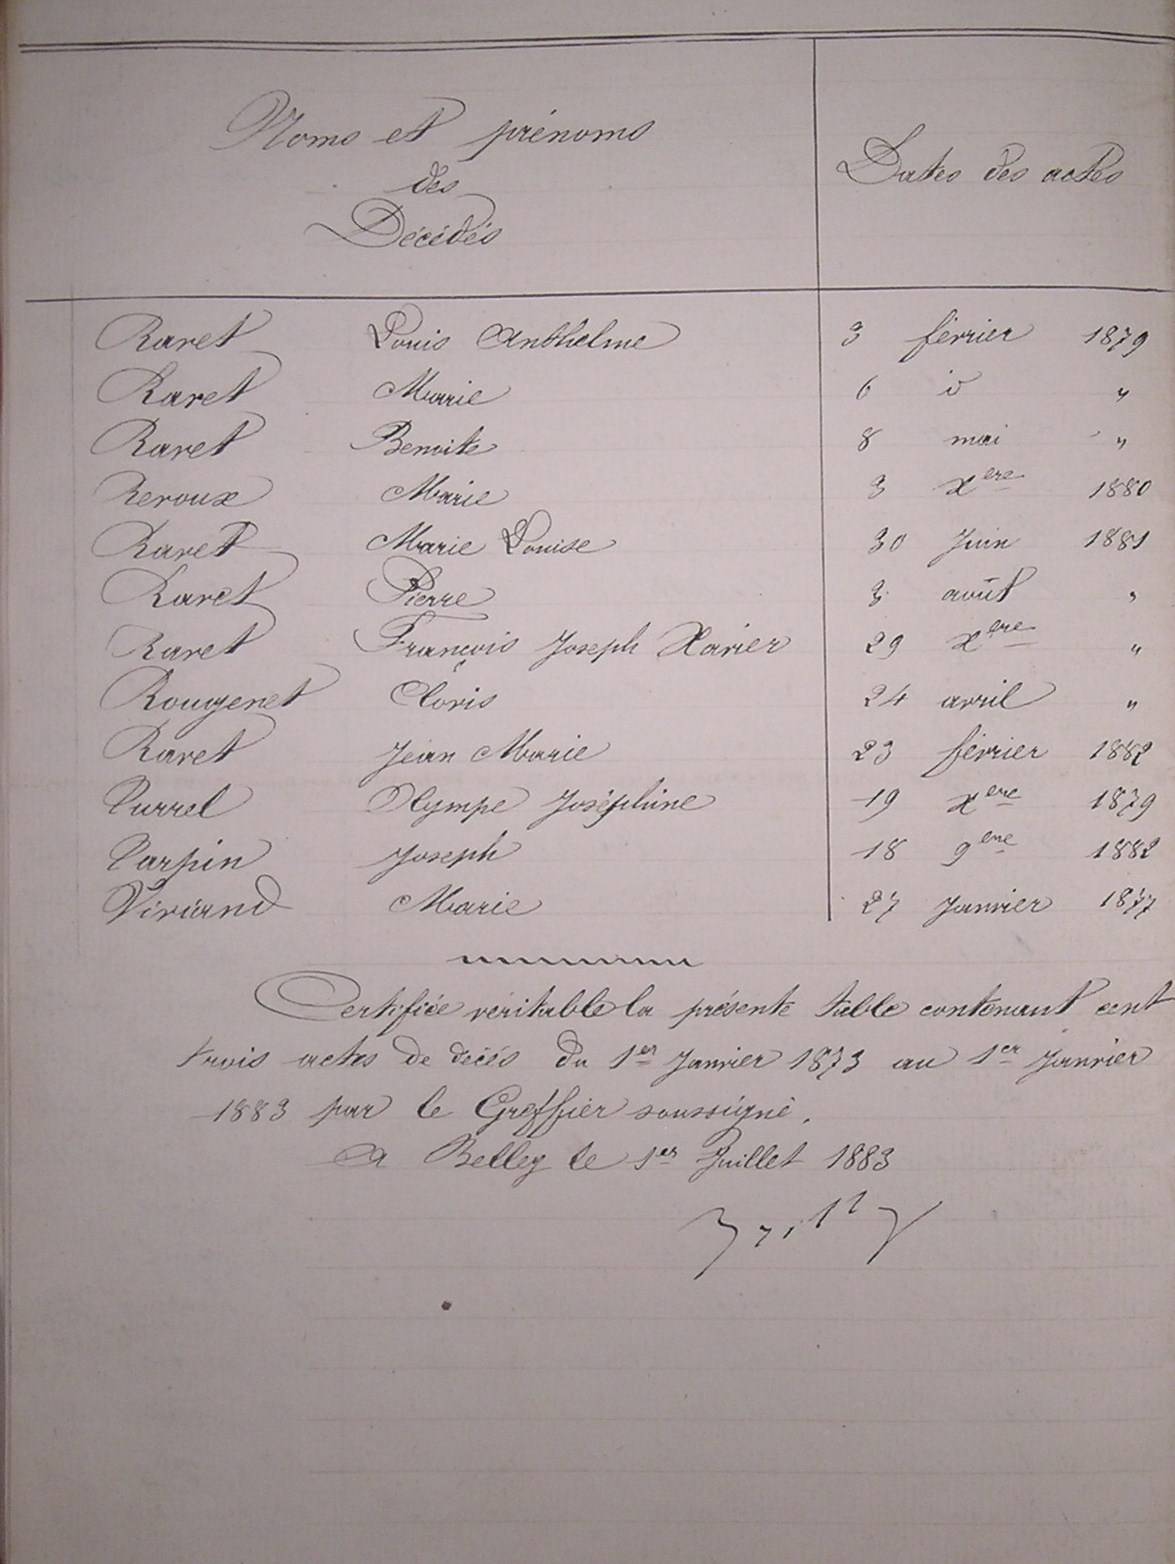 Noms et prénoms
des
Décédés
Dates des actes
Ravet Louis Anthelme 3 février 1879
Ravet Marie 6 id "
Ravet Benoite 8 mai "
Reroux Marie 3 xbre 1880
Ravet Marie Louise 30 Juin 1881
Ravet Pierre 3 août "
Ravet François Joseph Xavier 29 xbre "
Rougenet Clovis 24 avril "
Ravet Jean Marie 23 février 1882
Turrel Olympe Joséphine 19 xbre 1879
Tarpin Joseph 18 9bre 1882
Viviand Marie 27 Janvier 1877
Certifiée véritable la présente table contenant cent
trois actes de décès du 1er Janvier 1873 au 1er Janvier
1883 par le Greffier soussigné.
A Belley le 1er Juillet 1883